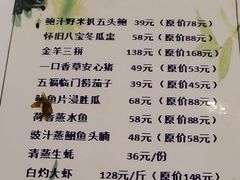 鲍汁野米扒五头鲍 39元 (原价78元)
怀旧八宝冬瓜盅 58元 (原价88元)
金羊三拼 138元 (原价168元)
一口香草安心猪 49元 (原价63元)
五福临门捞茄子 48元 (原价58元)
鱼片浸胜瓜 68元 (原价88元)
荷香蒸水鱼 58元 (原价88元)
豉汁蒸鮰鱼头腩 48元 (原价58元)
清蒸生蚝 36元/份
白灼大虾 128元/斤 (原价148元)